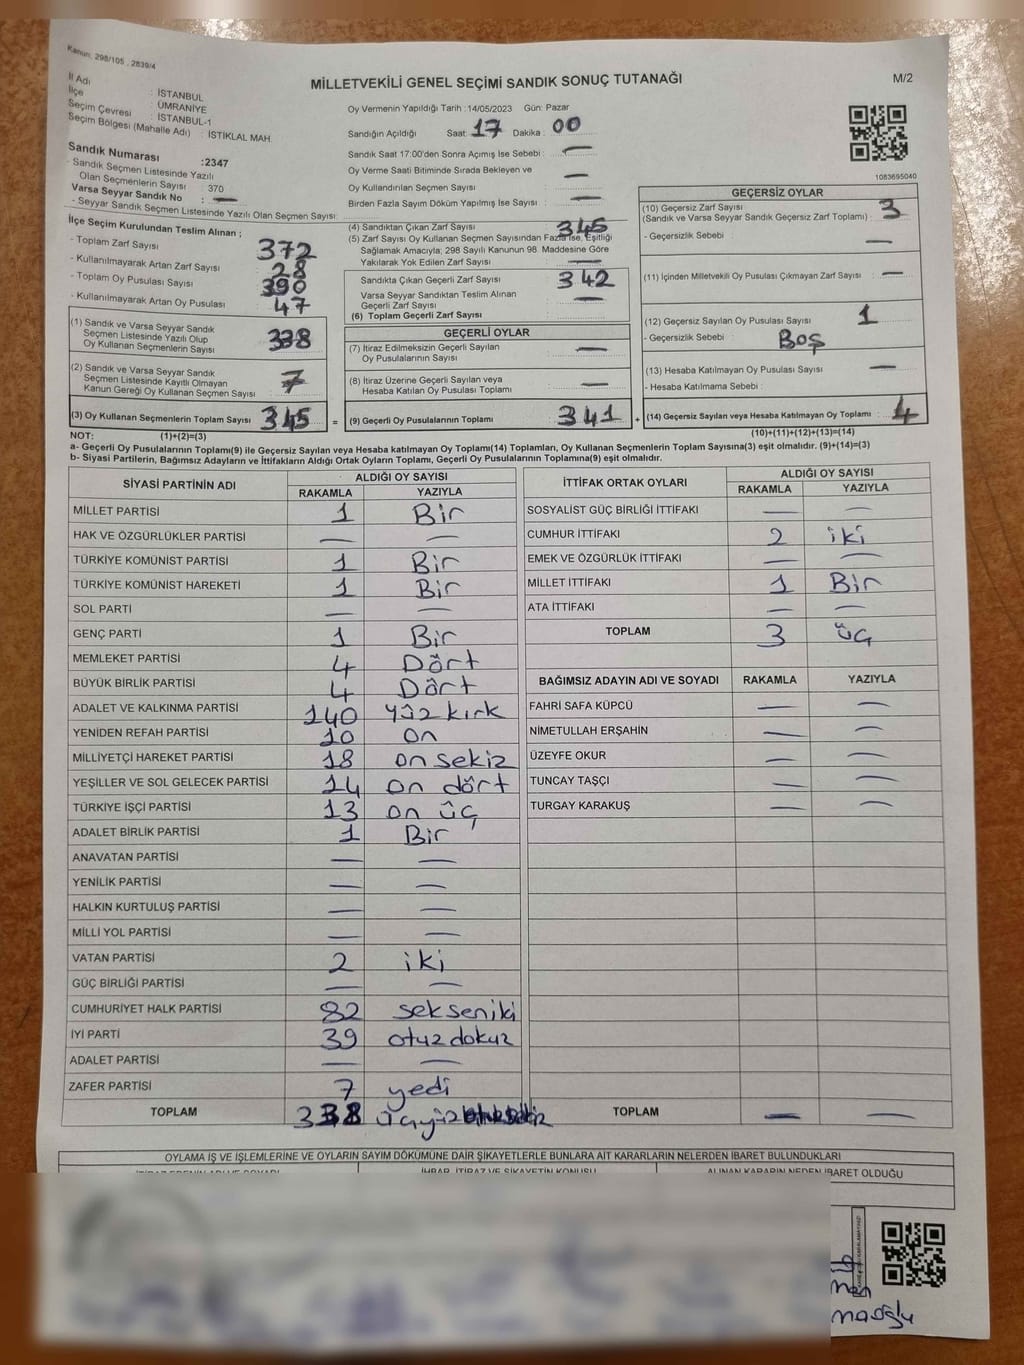 Kanun, 298/105 , 2839/4
MİLLETVEKİLİ GENEL SEÇİMİ SANDIK SONUÇ TUTANAĞI
M/2
İl Adı : İSTANBUL
İlçe : ÜMRANİYE
Seçim Çevresi : İSTANBUL-1
Seçim Bölgesi (Mahalle Adı) : İSTİKLAL MAH.
Oy Vermenin Yapıldığı Tarih : 14/05/2023 Gün: Pazar
Sandığın Açıldığı Saat : 17 Dakika : 00
Sandık Saat 17:00'den Sonra Açımış İse Sebebi : —
Oy Verme Saati Bitiminde Sırada Bekleyen ve
Oy Kullandırılan Seçmen Sayısı : —
Birden Fazla Sayım Döküm Yapılmış İse Sayısı : —
Sandık Numarası : 2347
- Sandık Seçmen Listesinde Yazılı
Olan Seçmenlerin Sayısı : 370
Varsa Seyyar Sandık No : —
- Seyyar Sandık Seçmen Listesinde Yazılı Olan Seçmen Sayısı:
1083695040
İlçe Seçim Kurulundan Teslim Alınan ;
- Toplam Zarf Sayısı : 372
- Kullanılmayarak Artan Zarf Sayısı : 28
- Toplam Oy Pusulası Sayısı : 390
- Kullanılmayarak Artan Oy Pusulası : 47
(1) Sandık ve Varsa Seyyar Sandık
Seçmen Listesinde Yazılı Olup
Oy Kullanan Seçmenlerin Sayısı 338
(2) Sandık ve Varsa Seyyar Sandık
Seçmen Listesinde Kayıtlı Olmayan
Kanun Gereği Oy Kullanan Seçmen Sayısı 7
(3) Oy Kullanan Seçmenlerin Toplam Sayısı 345 =
(4) Sandıktan Çıkan Zarf Sayısı : 345
(5) Zarf Sayısı Oy Kullanan Seçmen Sayısından Fazla İse, Eşitliği
Sağlamak Amacıyla, 298 Sayılı Kanunun 98. Maddesine Göre
Yakılarak Yok Edilen Zarf Sayısı : —
Sandıkta Çıkan Geçerli Zarf Sayısı : 342
Varsa Seyyar Sandıktan Teslim Alınan
Geçerli Zarf Sayısı : —
(6) Toplam Geçerli Zarf Sayısı :
GEÇERLİ OYLAR
(7) İtiraz Edilmeksizin Geçerli Sayılan
Oy Pusulalarının Sayısı : —
(8) İtiraz Üzerine Geçerli Sayılan veya
Hesaba Katılan Oy Pusulası Toplamı : —
(9) Geçerli Oy Pusulalarının Toplamı : 341 +
GEÇERSİZ OYLAR
(10) Geçersiz Zarf Sayısı
(Sandık ve Varsa Seyyar Sandık Geçersiz Zarf Toplamı) : 3
- Geçersizlik Sebebi : —
(11) İçinden Milletvekili Oy Pusulası Çıkmayan Zarf Sayısı : —
(12) Geçersiz Sayılan Oy Pusulası Sayısı : 1
- Geçersizlik Sebebi : Boş
(13) Hesaba Katılmayan Oy Pusulası Sayısı : —
- Hesaba Katılmama Sebebi :
(14) Geçersiz Sayılan veya Hesaba Katılmayan Oy Toplamı : 4
NOT: (1)+(2)=(3)
(10)+(11)+(12)+(13)=(14)
a- Geçerli Oy Pusulalarının Toplamı(9) ile Geçersiz Sayılan veya Hesaba katılmayan Oy Toplamı(14) Toplamları, Oy Kullanan Seçmenlerin Toplam Sayısına(3) eşit olmalıdır. (9)+(14)=(3)
b- Siyasi Partilerin, Bağımsız Adayların ve İttifakların Aldığı Ortak Oyların Toplamı, Geçerli Oy Pusulalarının Toplamına(9) eşit olmalıdır.
SİYASİ PARTİNİN ADI ALDIĞI OY SAYISI
RAKAMLA YAZIYLA
MİLLET PARTİSİ 1 Bir
HAK VE ÖZGÜRLÜKLER PARTİSİ — —
TÜRKİYE KOMÜNİST PARTİSİ 1 Bir
TÜRKİYE KOMÜNİST HAREKETİ 1 Bir
SOL PARTİ — —
GENÇ PARTİ 1 Bir
MEMLEKET PARTİSİ 4 Dört
BÜYÜK BİRLİK PARTİSİ 4 Dört
ADALET VE KALKINMA PARTİSİ 140 yüz kırk
YENİDEN REFAH PARTİSİ 10 on
MİLLİYETÇİ HAREKET PARTİSİ 18 on sekiz
YEŞİLLER VE SOL GELECEK PARTİSİ 14 on dört
TÜRKİYE İŞÇİ PARTİSİ 13 on üç
ADALET BİRLİK PARTİSİ 1 Bir
ANAVATAN PARTİSİ — —
YENİLİK PARTİSİ — —
HALKIN KURTULUŞ PARTİSİ — —
MİLLİ YOL PARTİSİ — —
VATAN PARTİSİ 2 iki
GÜÇ BİRLİĞİ PARTİSİ — —
CUMHURİYET HALK PARTİSİ 82 sekseniki
İYİ PARTİ 39 otuz dokuz
ADALET PARTİSİ — —
ZAFER PARTİSİ 7 yedi
TOPLAM 338 üçyüz
İTTİFAK ORTAK OYLARI ALDIĞI OY SAYISI
RAKAMLA YAZIYLA
SOSYALİST GÜÇ BİRLİĞİ İTTİFAKI — —
CUMHUR İTTİFAKI 2 iki
EMEK VE ÖZGÜRLÜK İTTİFAKI — —
MİLLET İTTİFAKI 1 Bir
ATA İTTİFAKI — —
TOPLAM 3 üç
BAĞIMSIZ ADAYIN ADI VE SOYADI RAKAMLA YAZIYLA
FAHRİ SAFA KÜPCÜ — —
NİMETULLAH ERŞAHİN — —
ÜZEYFE OKUR — —
TUNCAY TAŞÇI — —
TURGAY KARAKUŞ — —
TOPLAM — —
OYLAMA İŞ VE İŞLEMLERİNE VE OYLARIN SAYIM DÖKÜMÜNE DAİR ŞİKAYETLERLE BUNLARA AİT KARARLARIN NELERDEN İBARET BULUNDUKLARI
İHBAR, İTİRAZ VE ŞİKAYETİN KONUSU ALINAN KARARIN NEDEN İBARET OLDUĞU